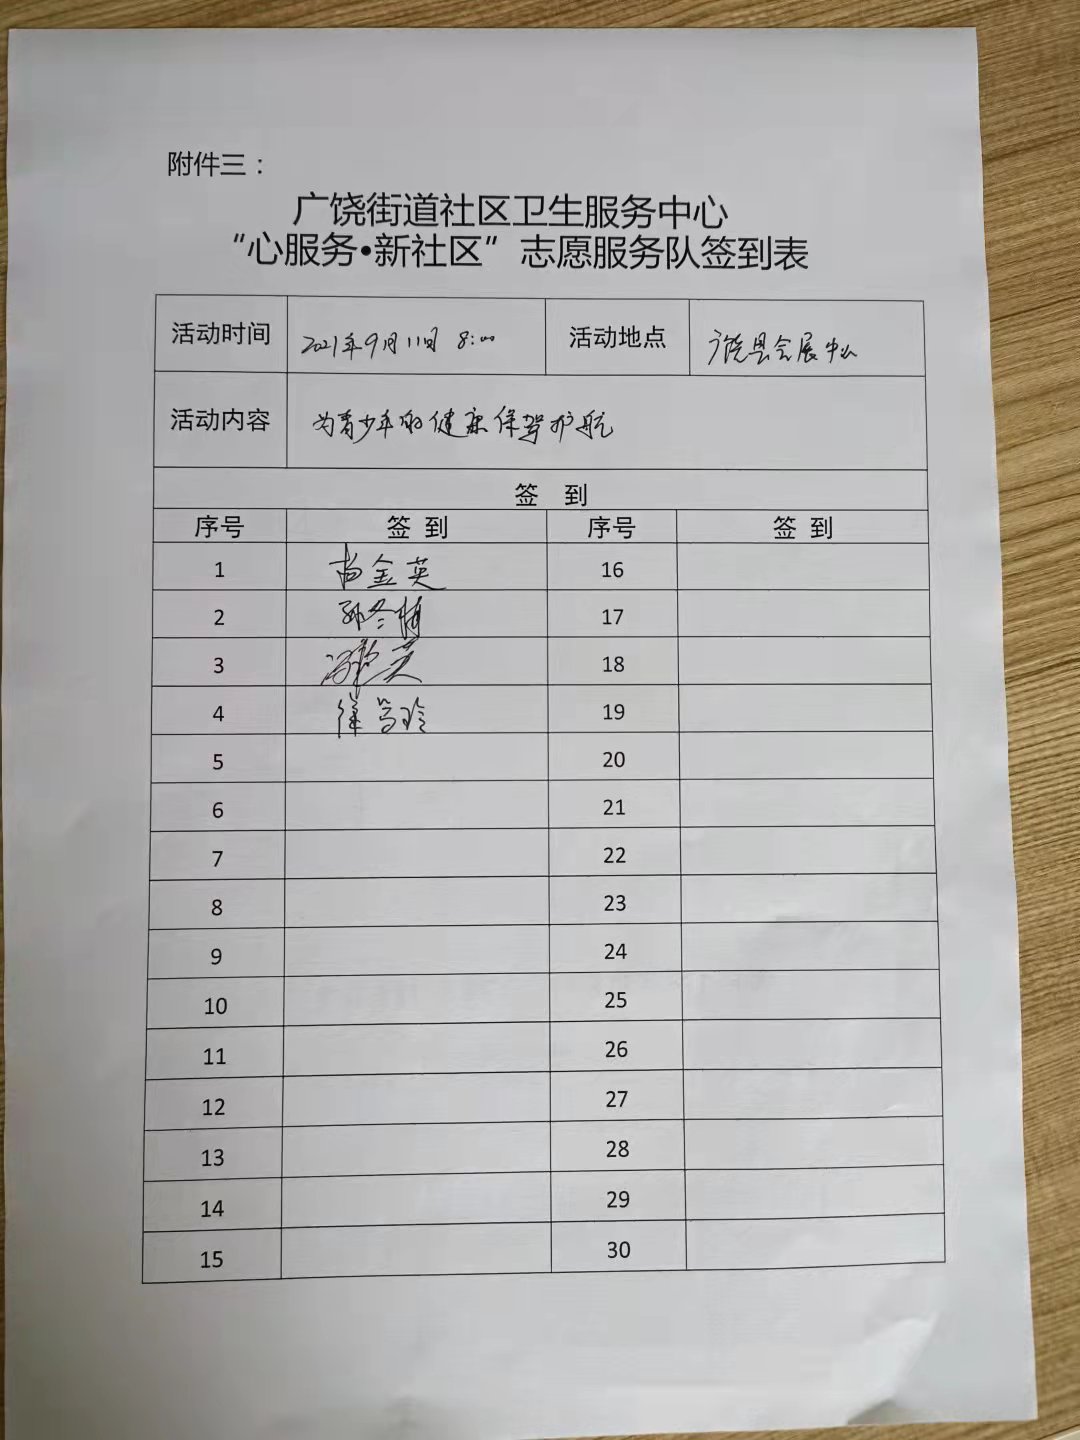 附件三：
广饶街道社区卫生服务中心
“心服务•新社区”志愿服务队签到表
活动时间 2021年9月11日 8:00 活动地点 广饶县会展中心
活动内容 为青少年的健康保驾护航
签 到
序号 签 到 序号 签 到
1 尚金英 16
2 孙冬梅 17
3 英 18
4 徐笃玲 19
5 20
6 21
7 22
8 23
9 24
10 25
11 26
12 27
13 28
14 29
15 30